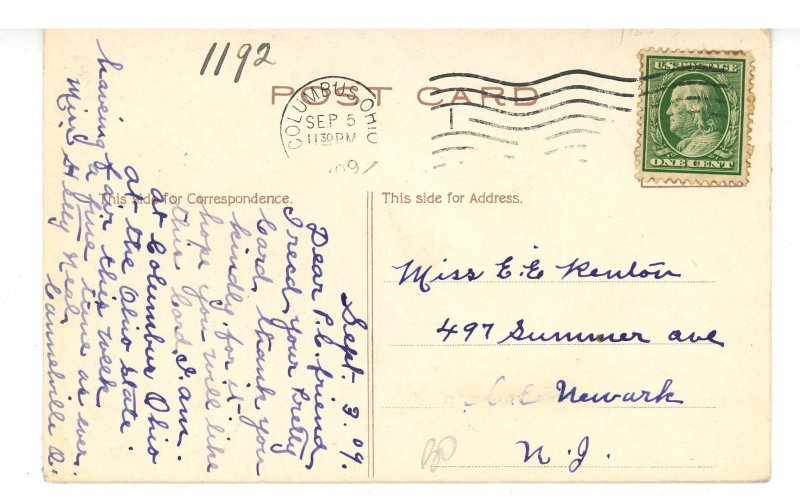 1192
POST CARD
COLUMBUS, OHIO
SEP 5
1130 PM
1
U.S. POSTAGE
ONE CENT
This side for Correspondence.
This side for Address.
Sept. 3. 09.
Dear P.C. friend
I recd your pretty
Card, thank you
kindly for it-
hope you will like
this Card, I am.
at Columbus Ohio
at the Ohio state.
fair this week
haveing a fine time as ever.
Miss H Neal
Cannelville O.
Miss E. E Kenton
497 Summer ave
Newark
N. J.